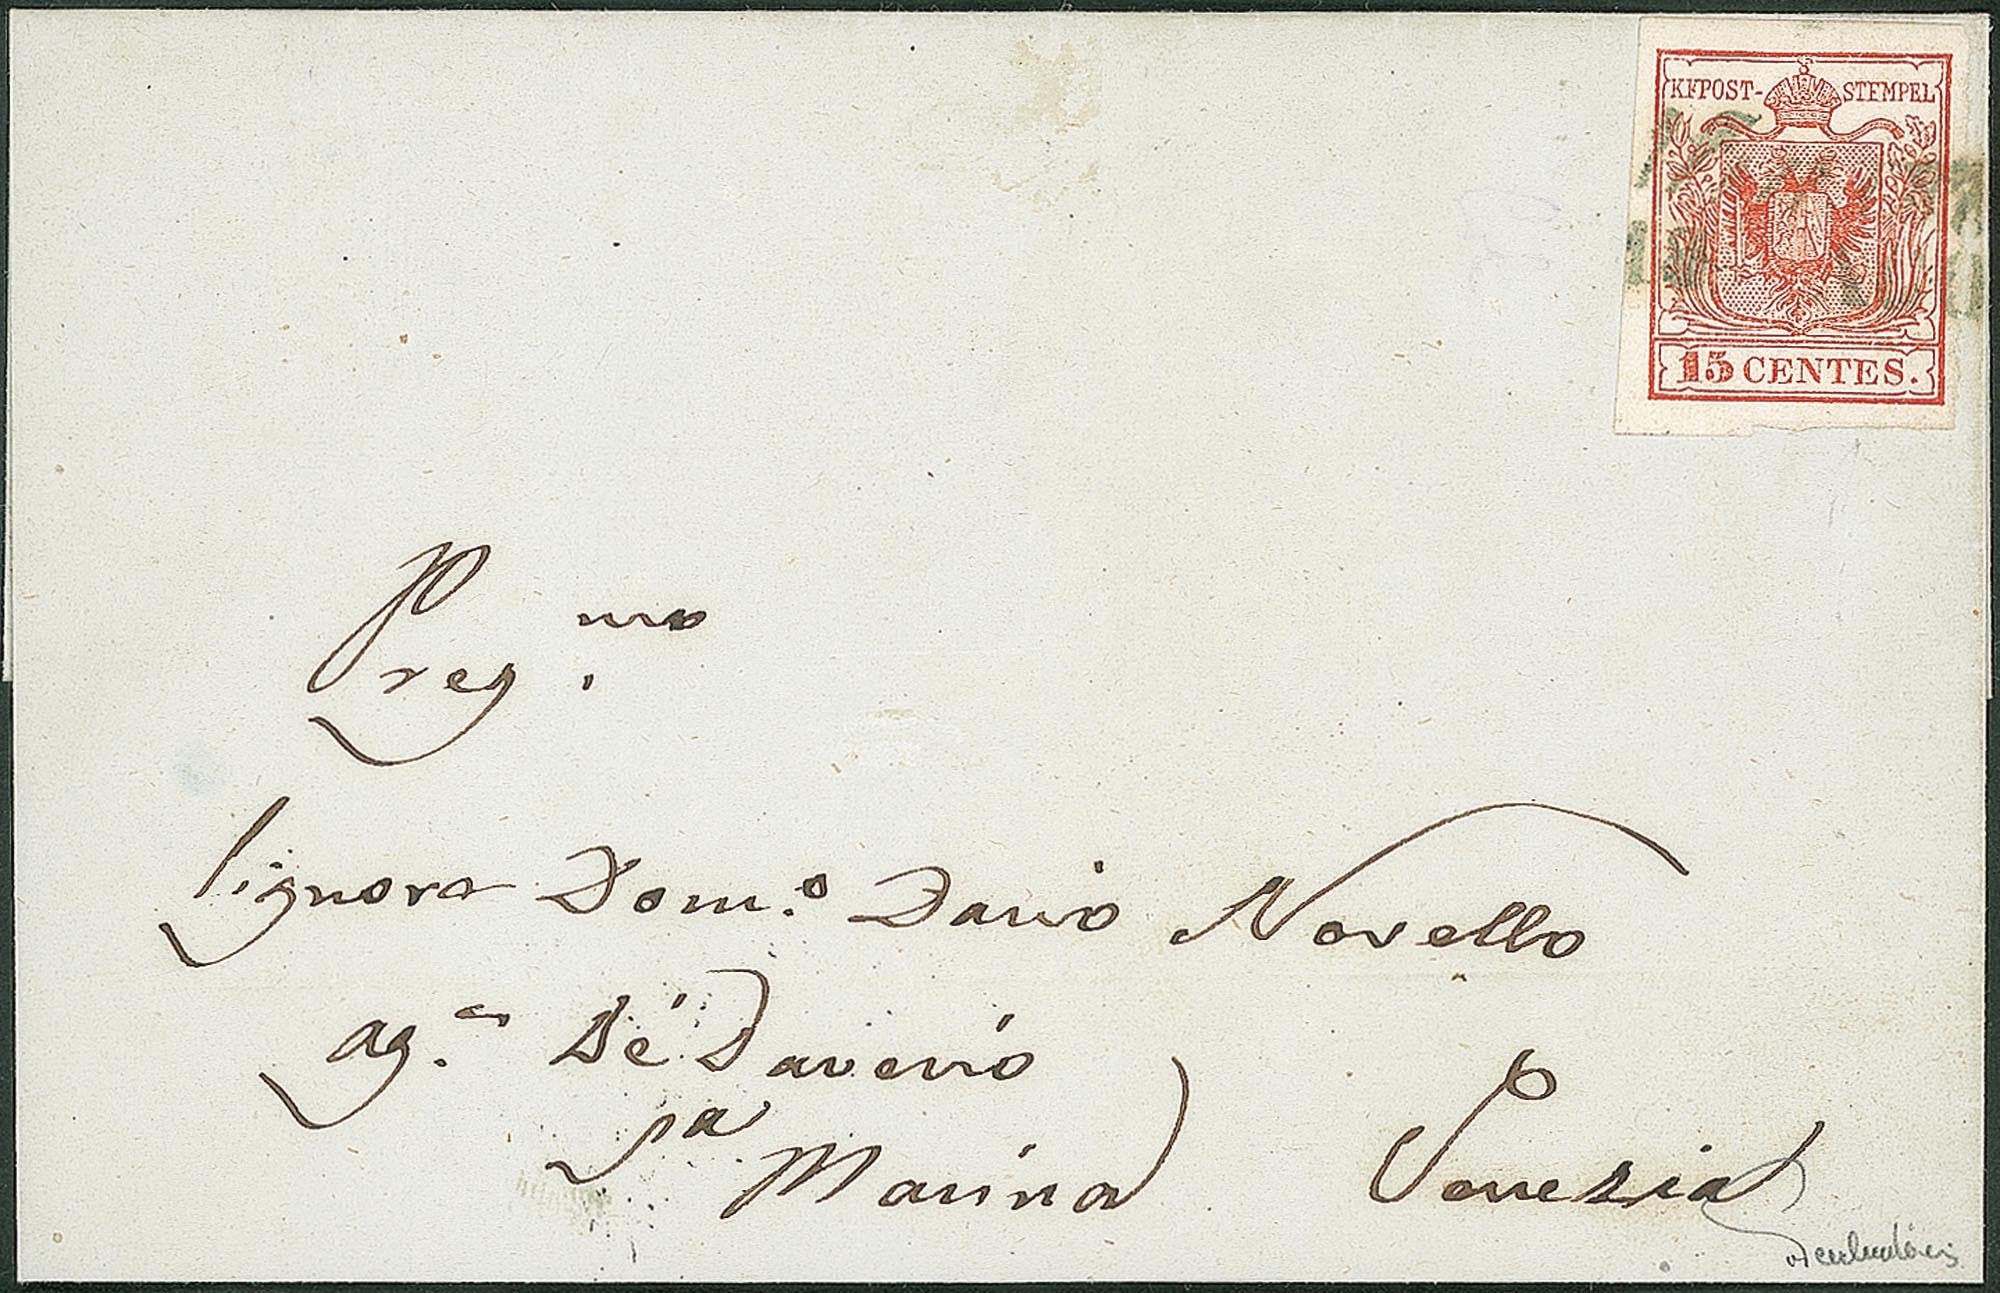 KK POST-STEMPEL
15 CENTES.
Preg.mo
Signora Dom.o Dario Novello
ag. Dè Daverio
Sa Marina Venezia